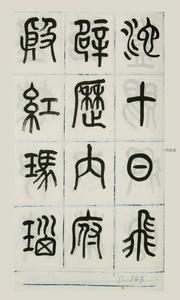 池十日飛
辟歷內府
殷紅瑪瑙